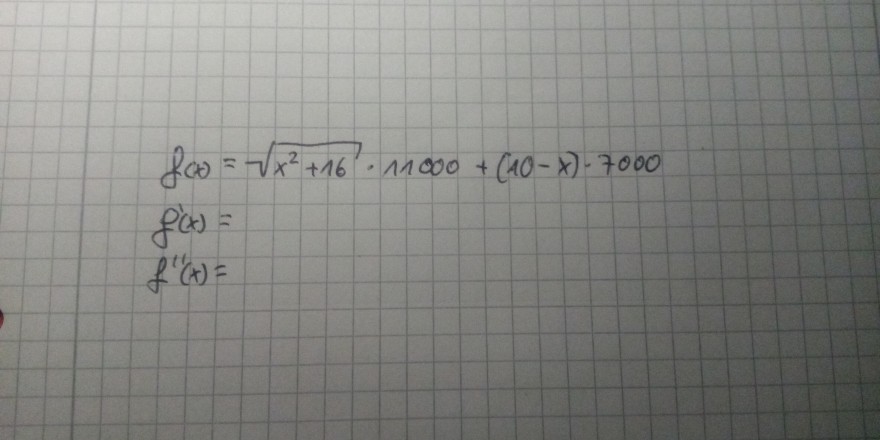 f(x) = √(x² + 16) · 11000 + (10 - x) · 7000
f'(x) =
f''(x) =